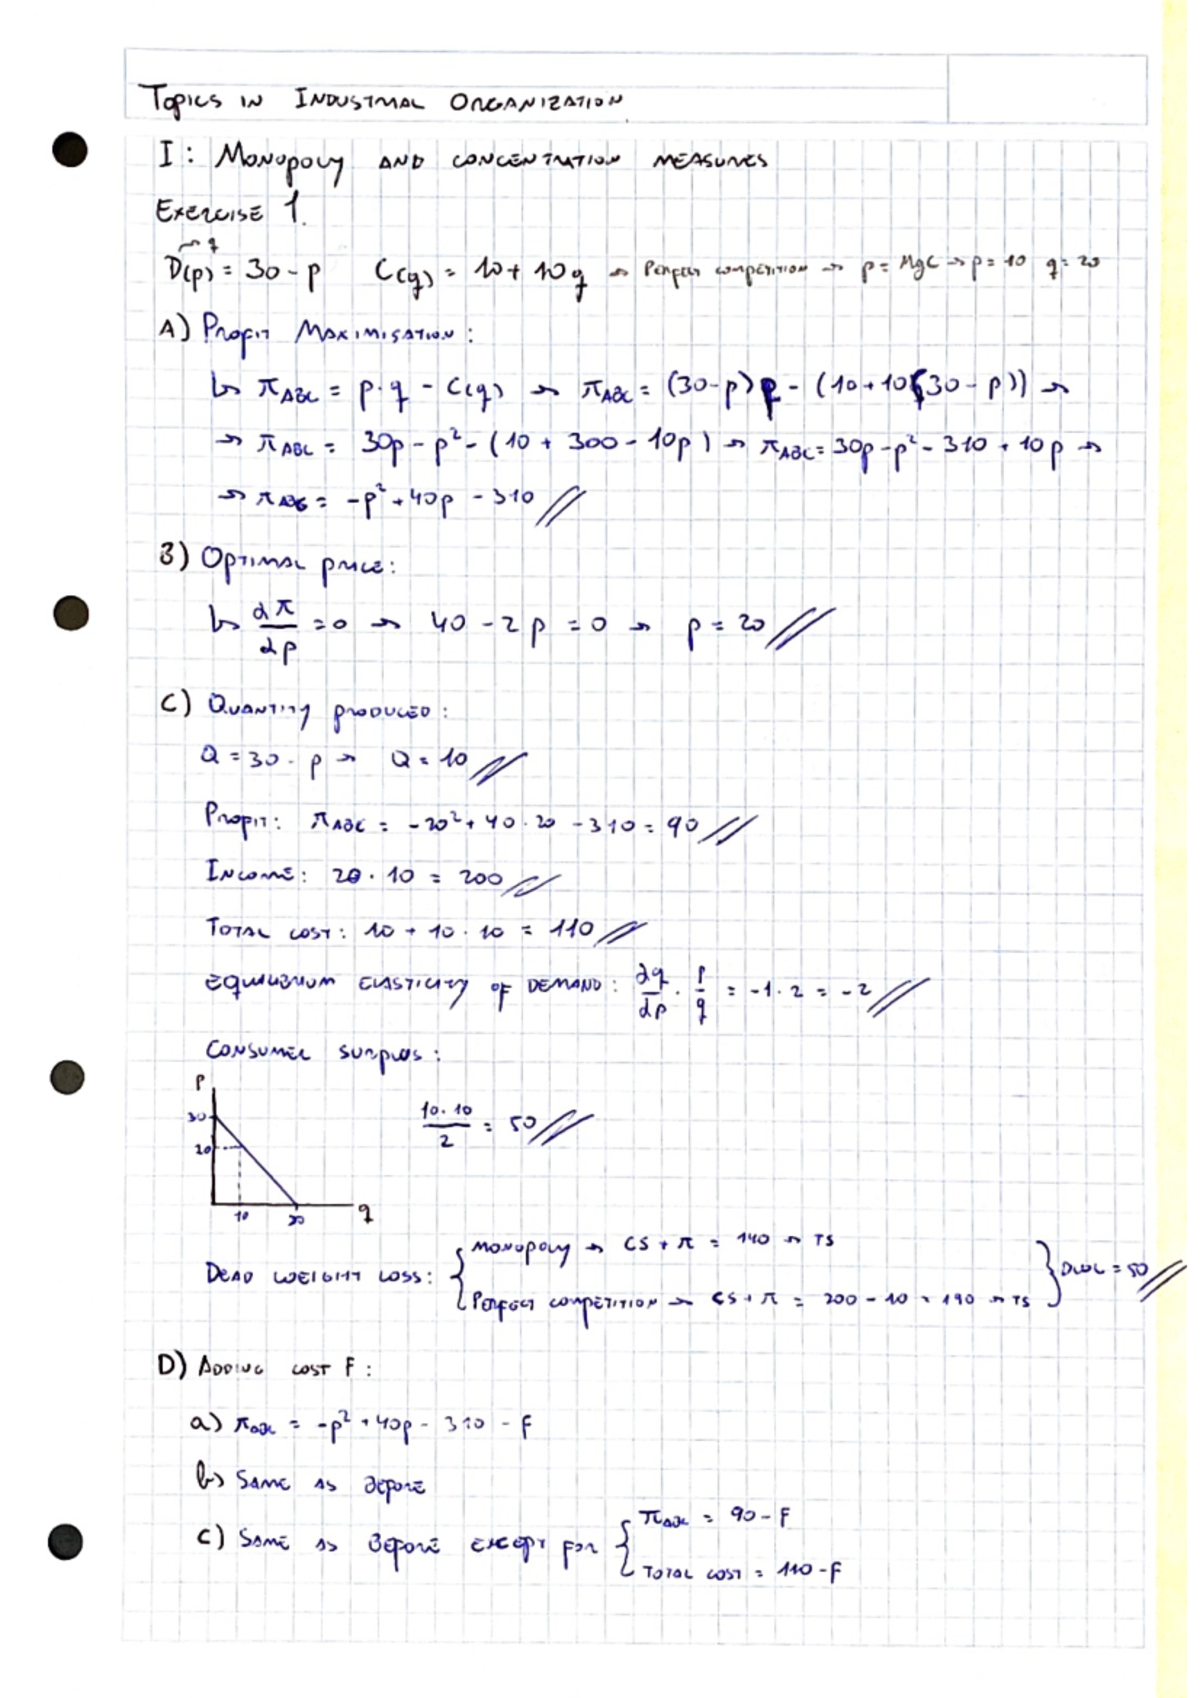 TOPICS IN INDUSTRIAL ORGANIZATION
I: MONOPOLY AND CONCENTRATION MEASURES
EXERCISE 1.
q
D(p) = 30 - p C(q) = 10 + 10q → PERFECT COMPETITION → p = MgC → p = 10 q = 20
A) PROFIT MAXIMISATION:
↳ π ABC = p · q - C(q) → π ABC = (30 - p) p - (10 + 10(30 - p)) →
→ π ABC = 30p - p² - (10 + 300 - 10p) → π ABC = 30p - p² - 310 + 10p →
→ π ABC = -p² + 40p - 310 //
B) OPTIMAL PRICE:
↳ dπ/dp = 0 → 40 - 2p = 0 → p = 20 //
C) QUANTITY PRODUCED:
Q = 30 - p → Q = 10 //
PROFIT: π ABC = -20² + 40 · 20 - 310 = 90 //
INCOME: 20 · 10 = 200 //
TOTAL COST: 10 + 10 · 10 = 110 //
EQUILIBRIUM ELASTICITY OF DEMAND: dq/dp · p/q = -1 · 2 = -2 //
CONSUMER SURPLUS:
P
30
20
10 30 q
10 · 10 / 2 = 50 //
DEAD WEIGHT LOSS: { MONOPOLY → CS + π = 140 → TS
PERFECT COMPETITION → CS + π = 200 - 10 = 190 → TS } DWL = 50 //
D) ADDING COST F:
a) π ABC = -p² + 40p - 310 - F
b) SAME AS BEFORE
c) SAME AS BEFORE EXCEPT FOR { π ABC = 90 - F
TOTAL COST = 110 - F